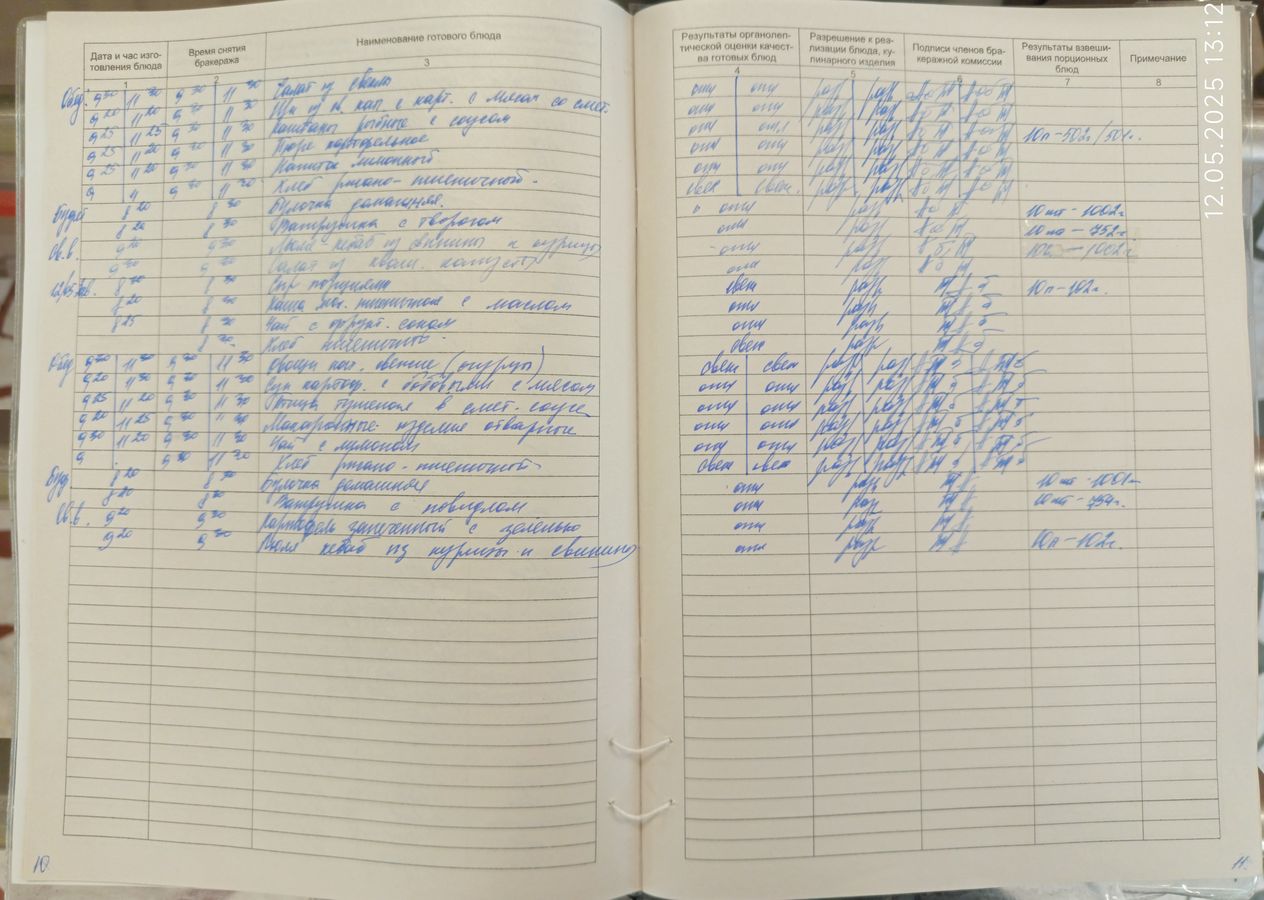 Дата и час изго-
товления блюда
Время снятия
бракеража
Наименование готового блюда
1
2
3
Обед 9 30 11 30 9 30 11 30 Салат из свеклы
9 20 11 20 9 30 11 30 с карт. с мясом со смет.
9 25 11 25 9 30 11 30 рыбные с соусом
9 25 11 20 9 30 11 30 Пюре картофельное
9 25 11 20 9 30 11 30 Напиток лимонный
9 11 9 30 11 30 Хлеб ржано-пшеничный.
Буфет 8 20 8 30 Булочка домашняя.
8 20 8 30 Ватрушка с творогом
Св.в. 9 20 9 30 Люля кебаб из свинины и курицы
9 20 9 30 Салат из квашен. капусты
12/05 8 20 8 30 Сыр порциями
8 20 8 30 Каша пшеничная с маслом
8 25 8 30 Чай с фрукт. соком
8 30 Хлеб пшеничн.
Обед 9 30 11 30 9 30 11 30 Овощи нат. свежие (огурцы)
9 20 11 30 9 30 11 30 Суп картоф. с бобовыми с мясом
9 25 11 20 9 30 11 30 Птица тушеная в смет. соусе
9 20 11 25 9 30 11 30 Макаронные изделия отварные
9 30 11 20 9 30 11 30 Чай с лимоном
9 9 30 11 30 Хлеб ржано-пшеничный
Буф. 8 20 8 30 Булочка домашняя
8 20 8 30 Ватрушка с повидлом
Св.в. 9 20 9 30 Картофель запеченный с зеленью
9 20 9 30 Люля кебаб из курицы и свинины
10
Результаты органолеп-
тической оценки качест-
ва готовых блюд
Разрешение к реа-
лизации блюда, ку-
линарного изделия
Подписи членов бра-
керажной комиссии
Результаты взвеши-
вания порционных
блюд
Примечание
4
5
6
7
8
отл отл разр разр
отл отл разр разр
отл отл разр разр 10п-502г/501г.
отл отл разр разр
отл отл разр разр
свеж свеж. разр разр
отл разр 10шт-1002г
отл разр 10шт-752г
отл разр 10п-1002г
отл разр
свеж разр 10п-102г.
отл разр
отл разр
свеж разр
свеж свеж разр разр
отл отл разр разр
отл отл разр разр
отл отл разр разр
отл отл разр разр
свеж свеж разр разр
отл разр 10шт-1001г
отл разр 10шт-754г.
отл разр
отл разр 10п-102г.
11
12.05.2025 13:12